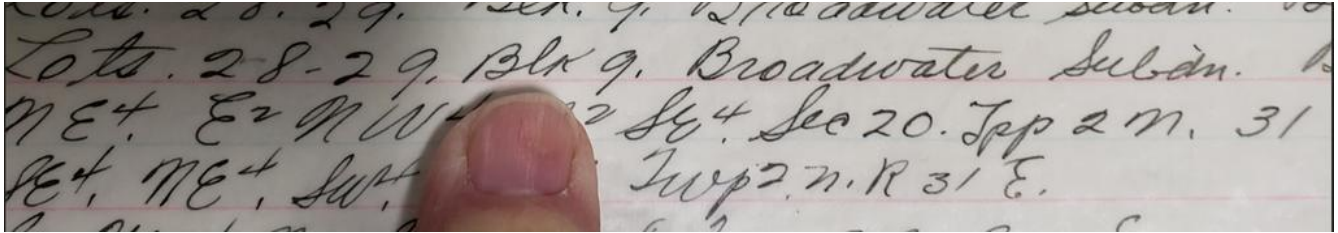 Lots. 28-29, Blk. 9, Broadwater Subdn.
Lots. 28-29, Blk 9. Broadwater Subdn.
NE4. E2 NW4 2 SE4. Sec 20. Tpp 2 N. 31
SE4, NE4, SW4. Twp 2. N. R 31 E.